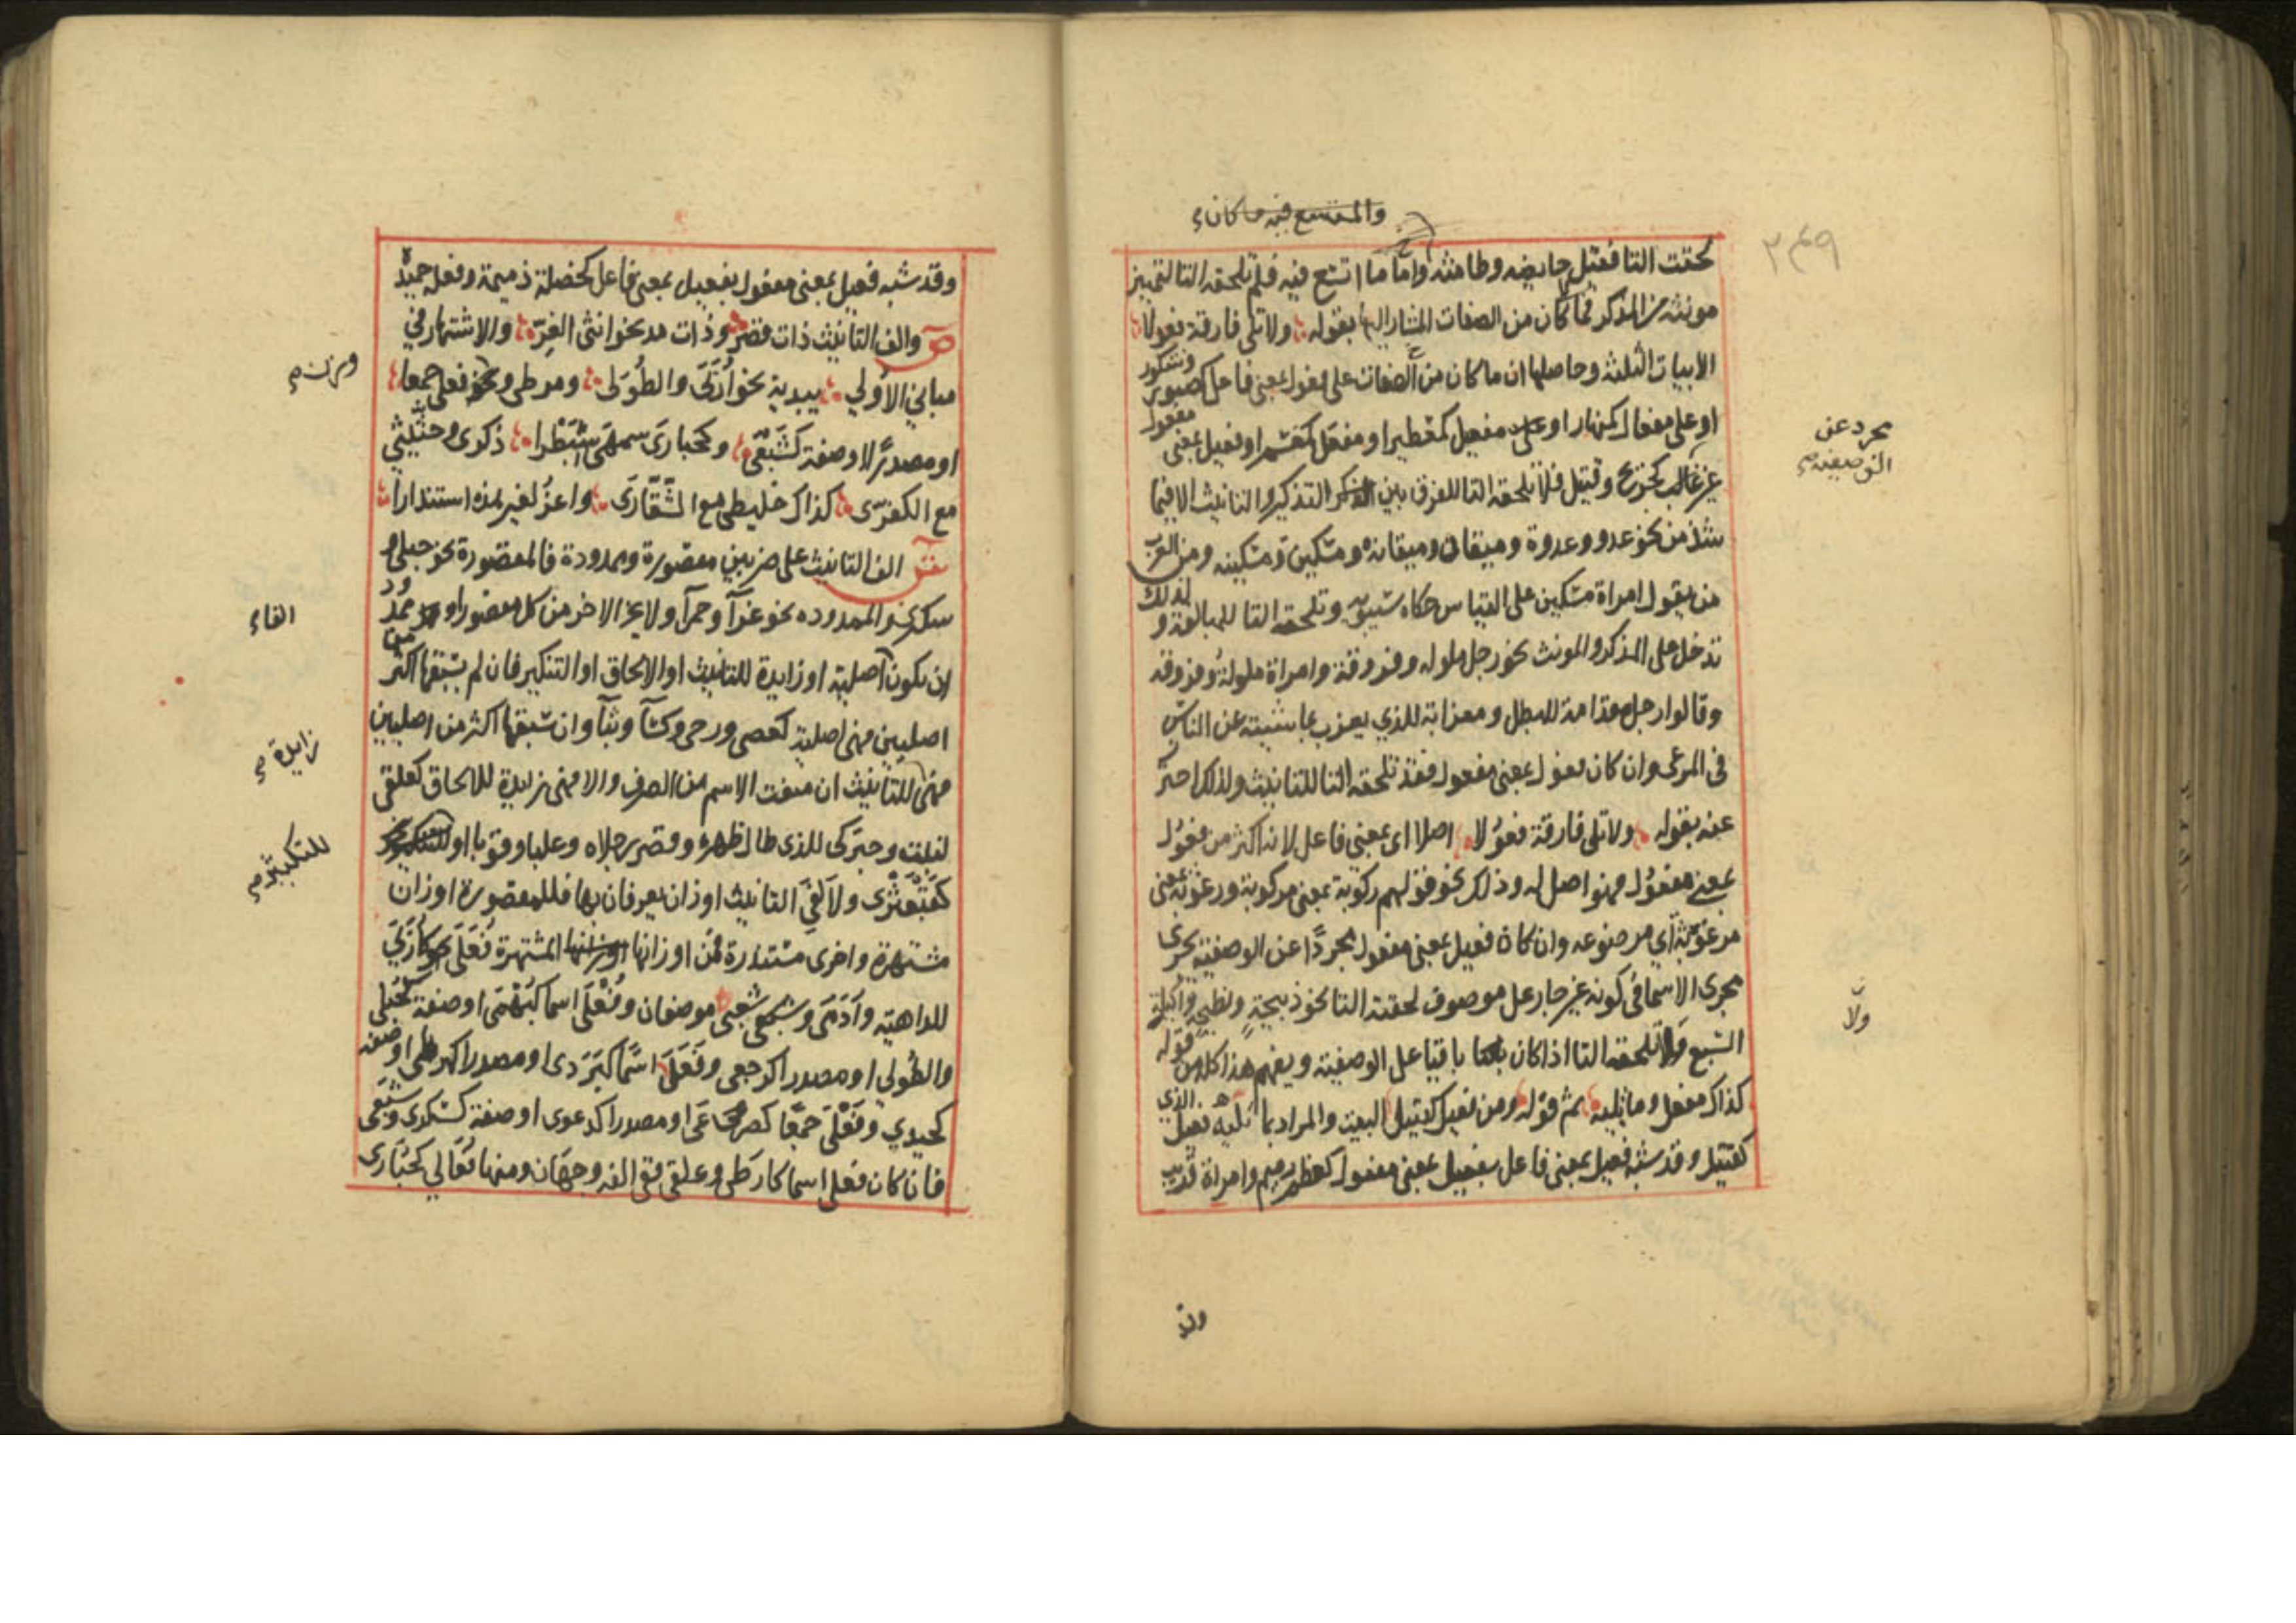 والمتسع فيه ما كان
٢٤٩
لحقت التا فقيل حايضه وطامثه واما ما اتسع فيه فلم تلحقه التا لتميز
مونثه من المذكر فما كان من الصفات المشار اليها بقوله ولا تلي فارقة فعولا
الابيات الثلثه وحاصلها ان ما كان من الصفات على فعول بمعنى فاعل كصبور وشكور
او على مفعال كمهذار او على مفعيل كمعطير او مفعل كمغشم او فعيل بمعنى مفعول
غير غالب كجريح وقتيل فلا تلحقه التا للفرق بين التذكير والتانيث الا فيما
شذ من نحو عدو وعدوة وميقان وميقانه ومسكين ومسكينه ومن العرب
من يقول امراة مسكين على القياس حكاه سيبويه وتلحقه التا للمبالغة ولذلك
تدخل على المذكر والمونث نحو رجل ملوله وفروقة وامراة ملولة وفروقه
وقالوا رجل مقدامة للبطل ومعزابة للذي يعزب بماشيته عن الناس
في المرعى وان كان فعول بمعنى مفعول فقد تلحقه التا للتانيث ولذلك احترز
عنه بقوله ولا تلي فارقة فعولا اصلا اي بمعنى فاعل لانه اكثر من فعول
بمعنى مفعول فهو اصل له وذلك نحو قولهم ركوبة بمعنى مركوبة ورغوثة بمعنى
مرغوثة اي مرضوعه وان كان فعيل بمعنى مفعول مجردا عن الوصفية جرى
مجرى الاسما في كونه غير جار على موصوف لحقته التا نحو ذبيحة ونطيحة واكيلة
السبع ولا تلحقه التا اذا كان باقيا على الوصفية ويفهم هذا كله من قوله
كذاك مفعل وما تليه ثم قوله ومن فعيل كقتيل البيت والمراد بما تليه فعيل الذي
كقتيل وقد شبه فعيل بمعنى فاعل بفعيل بمعنى مفعول كعظم رميم وامراة قريب
مجرد عن
الوصفيه
ولا
وقد
وقد شبه فعيل بمعنى مفعول بفعيل بمعنى فاعل كخصلة ذميمة وفعلة حميدة
ص والف التانيث ذات قصر وذات مد نحو انثى الغر والاشتهار في
مباني الاولي يبديه نحو اربى والطولى ومرطى ونحو فعلى جمعا
او مصدرا او صفة كشبعى وكحبارى سمهى سبطرا ذكرى وحثيثى
مع الكفرى كذاك خليطى مع الشقارى واعز لغير هذه استندارا
ش الف التانيث على ضربين مقصورة وممدودة فالمقصورة نحو حبلى و
سكرى والممدوده نحو غرآ وحمرآ ولا يخ الاخر من كل مقصور او ممدود
ان يكون اصلية او زايدة للتانيث او الالحاق او التكثير فان لم يسبقها اكثر من
اصليين فهي اصلية كعصى ورحى وكسآ وبنآ وان سبقها اكثر من اصليين
فهي للتانيث ان منعت الاسم من الصرف والا فهي زايدة للالحاق كعلقى
لنبت وحبركى للذي طال ظهره وقصر رجلاه وعلبا وقوبا او
كقبعثرى ولالفي التانيث اوزان يعرفان بها فللمقصورة اوزان
مشتهرة واخرى مستندارة فمن اوزانها المشتهرة فعلى كاربى
للداهية وادمى وشعبى موضعان وفعلى اسما كبهمى او صفة كحبلى
والطولي او مصدرا كرجعى وفعلى اسما كبردى او مصدرا كمرطى او صفه
كحيدي وفعلى جمعا كصرعى او مصدرا كدعوى او صفة كسكرى وشبعى
فان كان فعلى اسما كارطى وعلقى ففي الفه وجهان ومنها فعالي كحبارى
ووزن
الفاء
زايدة
للتكثير